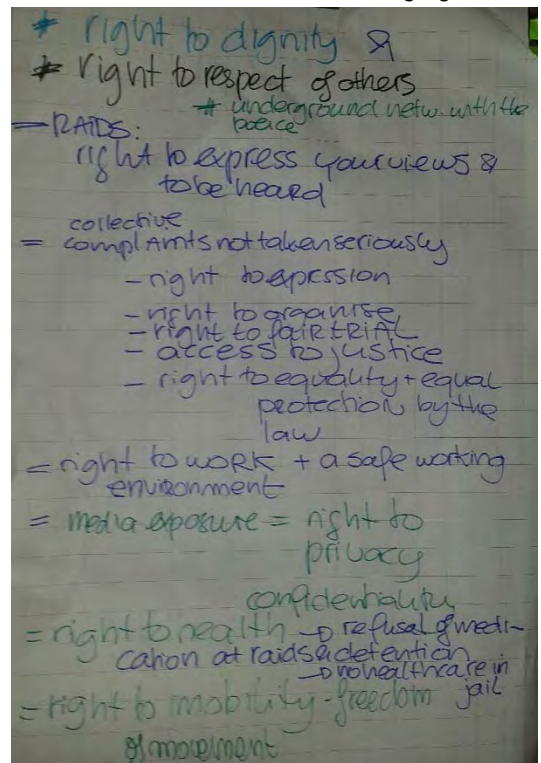 * right to dignity &
* right to respect of others
* underground netw. with the
police
- RAIDS:
right to express your views &
to be heard
collective
= complAints not taken seriously
- right to expression
- right to organise
- right to faiR tRiAL
- access to justice
- right to equality + equal
protection by the
law
= right to woRK + a safe working
environment
= media exposure = right to
privacy
confidentiality
= right to health → refusal of medi-
cation at raids & detention
→ no healthcare in
jail
= right to mobility - freedom
of movement